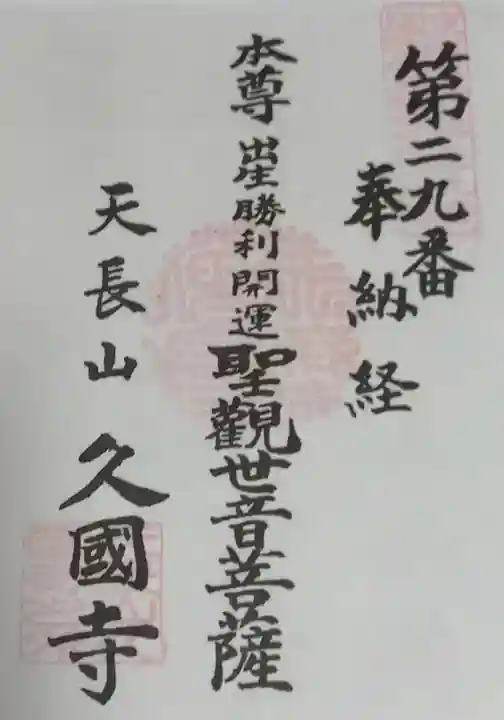 第二九番
奉納経
本尊 出生勝利開運聖觀世音菩薩
天長山 久國寺